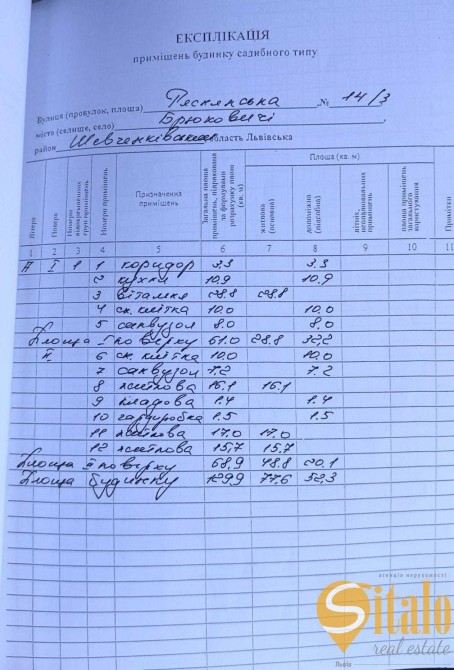 ЕКСПЛІКАЦІЯ
приміщень будинку садибного типу
Вулиця (провулок, площа) № 14/3
місто (селище, село) Брюховичі,
район Шевченківський область Львівська
Літера
Поверх
Номери приміщень
Призначення приміщень
Загальна площа приміщень, підрахована за формулами розрахунку площ (кв. м)
Площа (кв. м)
житлова (основна)
допоміжна (підсобна)
площа приміщень загального користування
Примітки
1 2 3 4 5 6 7 8 9 10 11
А I 1 1 коридор 3.3 3.3
2 кухня 10.9 10.9
3 вітальня 28.8 28.8
4 сх. клітка 10.0 10.0
5 санвузол 8.0 8.0
Площа I поверху 61.0 28.8 32,2
II 6 сх. клітка 10.0 10.0
7 санвузол 7.2 7.2
8 житлова 16.1 16.1
9 кладова 1.4 1.4
10 гардиробна 1.5 1.5
11 житлова 17.0 17.0
12 житлова 15,7 15.7
Площа II поверху 68,9 48.8 20.1
Площа будинку 129,9 77.6 52,3
агенція нерухомості
Sitalo
real estate
Львів